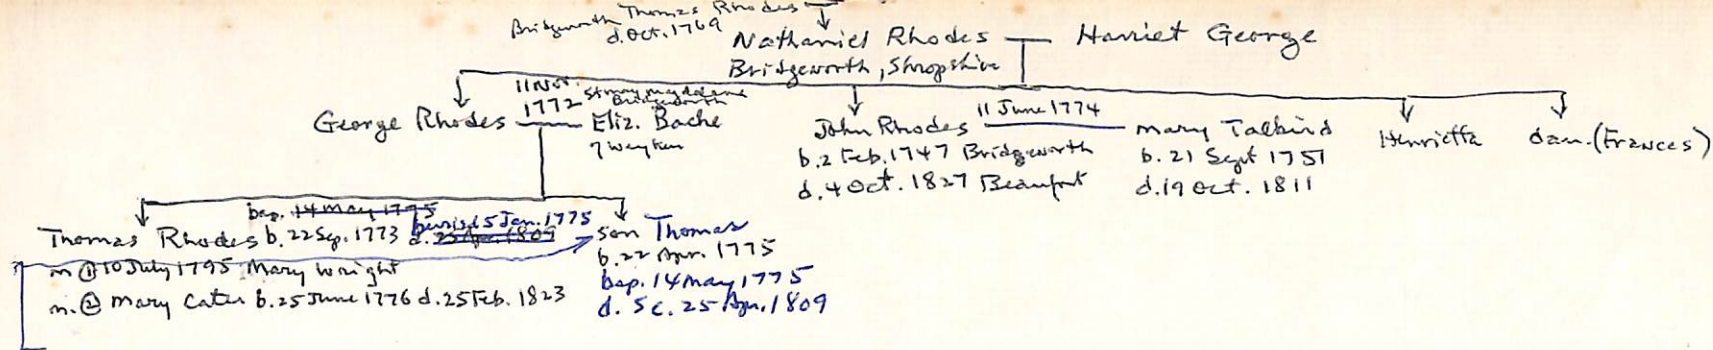 Bridgeworth Thomas Rhodes
d. Oct. 1769
Nathaniel Rhodes — Harriet George
Bridgeworth, Shropshire
11 Nov.
1772 St mary magdalene
Bridgeworth
George Rhodes — Eliz. Bache
John Rhodes 11 June 1774 Mary Talbird
b. 2 Feb. 1747 Bridgeworth
d. 4 Oct. 1827 Beaufort
b. 21 Sept 1751
d. 19 Oct. 1811
Henrietta
dau. (Frances)
bap. 14 May 1775
Thomas Rhodes b. 22 Sep. 1773 d. 25 Apr. 1809
buried 5 Jan. 1775
m ① 10 July 1795 Mary Wright
m. ② Mary Cater b. 25 June 1776 d. 25 Feb. 1823
son Thomas
b. 22 Apr. 1775
bap. 14 May 1775
d. Sc. 25 Apr. 1809